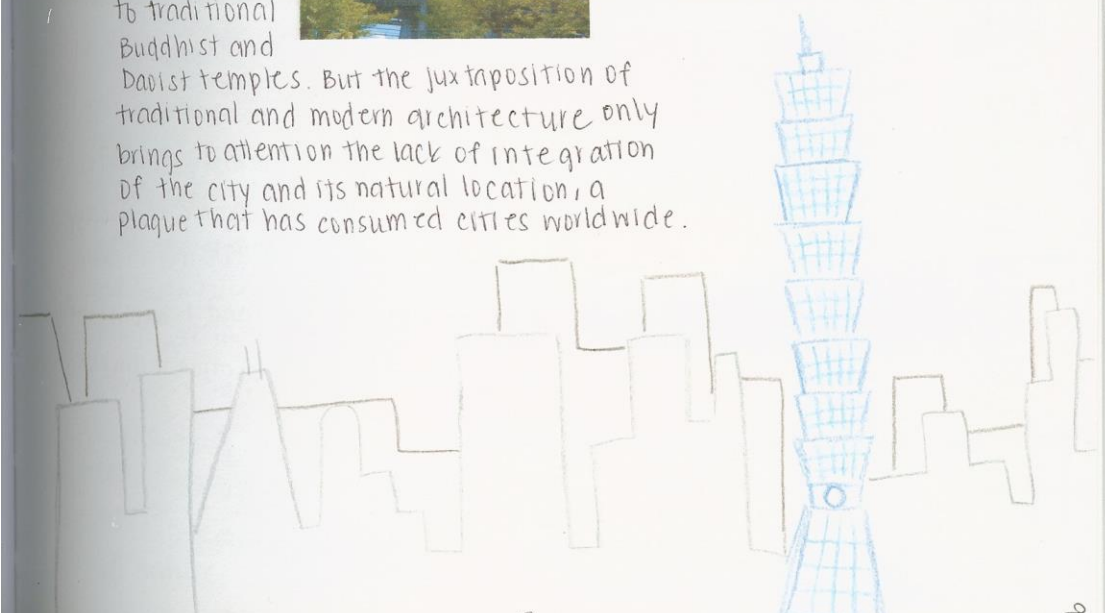 to traditional
Buddhist and
Daoist temples. But the juxtaposition of
traditional and modern architecture only
brings to attention the lack of integration
of the city and its natural location, a
plaque that has consumed cities worldwide.